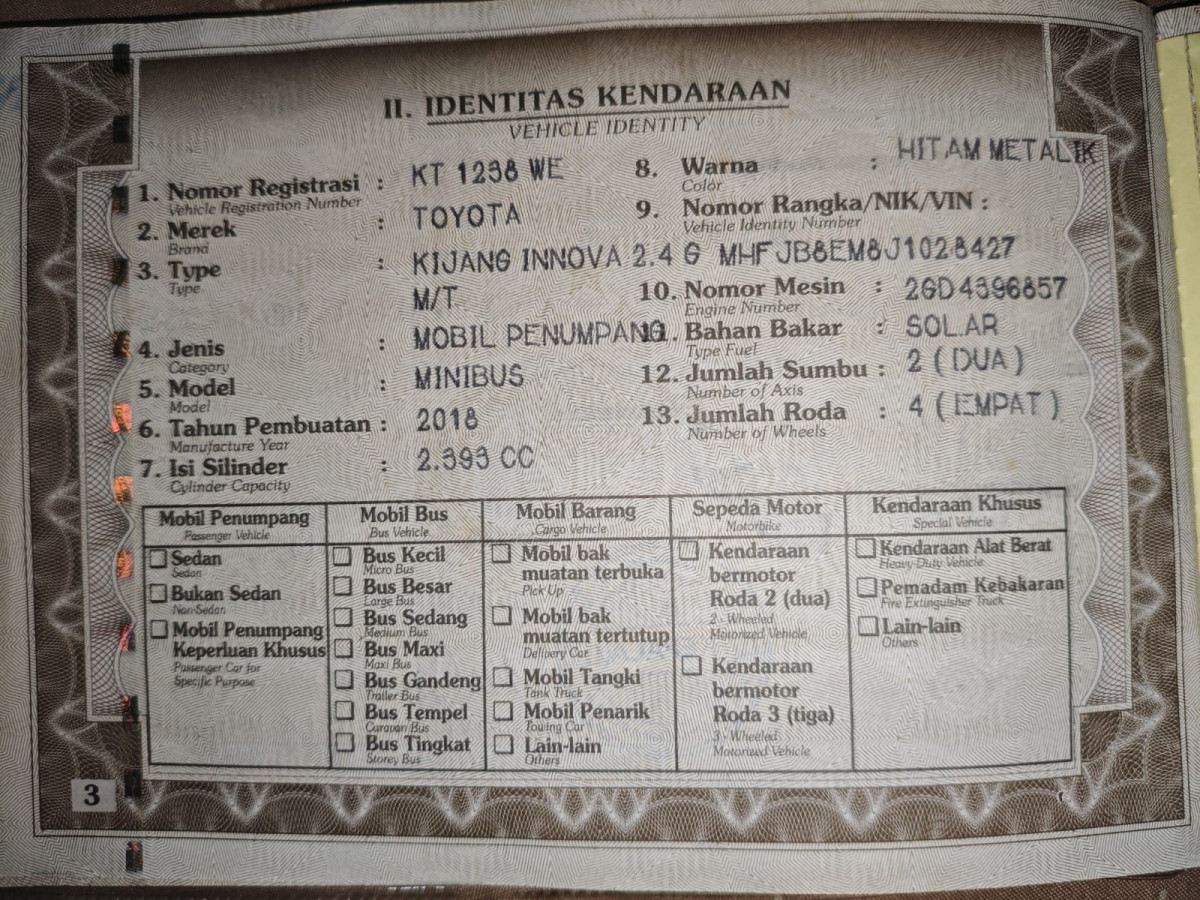 II. IDENTITAS KENDARAAN
VEHICLE IDENTITY
1. Nomor Registrasi : KT 1238 WE
Vehicle Registration Number
2. Merek : TOYOTA
Brand
3. Type : KIJANG INNOVA 2.4 G
Type
M/T
4. Jenis : MOBIL PENUMPANG
Category
5. Model : MINIBUS
Model
6. Tahun Pembuatan : 2018
Manufacture Year
7. Isi Silinder : 2.393 CC
Cylinder Capacity
8. Warna : HITAM METALIK
Color
9. Nomor Rangka/NIK/VIN :
Vehicle Identity Number
MHFJB8EM8J1028427
10. Nomor Mesin : 2GD4396857
Engine Number
11. Bahan Bakar : SOLAR
Type Fuel
12. Jumlah Sumbu : 2 ( DUA )
Number of Axis
13. Jumlah Roda : 4 ( EMPAT )
Number of Wheels
Mobil Penumpang
Passenger Vehicle
Sedan
Sedan
Bukan Sedan
Non-Sedan
Mobil Penumpang
Keperluan Khusus
Passenger Car for
Specific Purpose
Mobil Bus
Bus Vehicle
Bus Kecil
Micro Bus
Bus Besar
Large Bus
Bus Sedang
Medium Bus
Bus Maxi
Maxi Bus
Bus Gandeng
Trailer Bus
Bus Tempel
Caravan Bus
Bus Tingkat
Storey Bus
Mobil Barang
Cargo Vehicle
Mobil bak
muatan terbuka
Pick Up
Mobil bak
muatan tertutup
Delivery Car
Mobil Tangki
Tank Truck
Mobil Penarik
Towing Car
Lain-lain
Others
Sepeda Motor
Motorbike
Kendaraan
bermotor
Roda 2 (dua)
2 - Wheeled
Motorized Vehicle
Kendaraan
bermotor
Roda 3 (tiga)
3 - Wheeled
Motorized Vehicle
Kendaraan Khusus
Special Vehicle
Kendaraan Alat Berat
Heavy-Duty Vehicle
Pemadam Kebakaran
Fire Extinguisher Truck
Lain-lain
Others
3